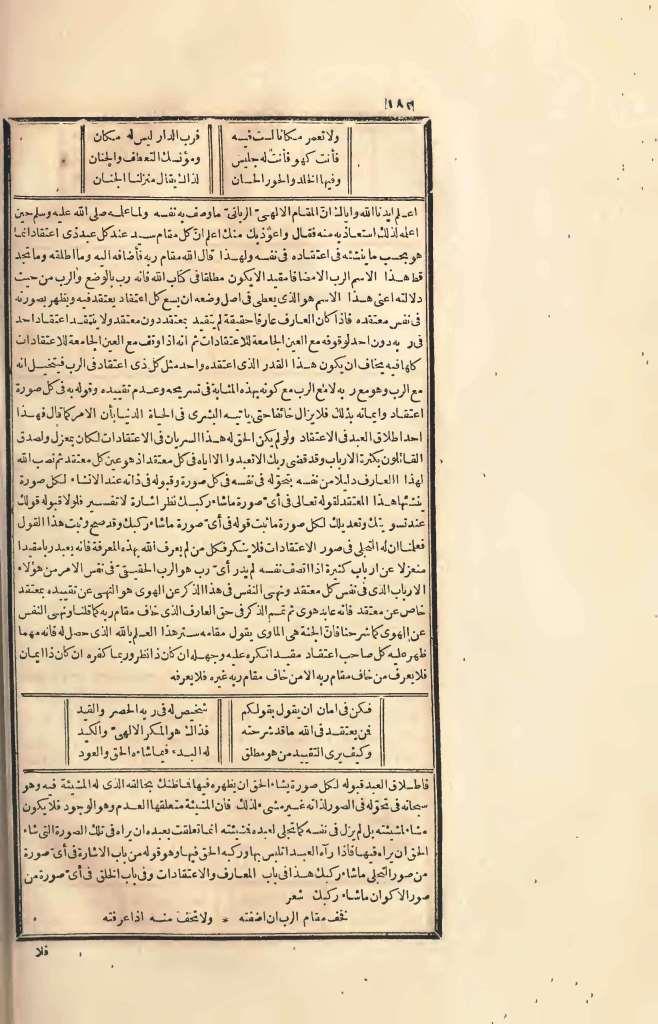 ١٨٣
ولا تعمر مكانا لست فيه فرب الدار ليس له مكان
فأنت كهو فأنت له جليس ومؤنسك التعطف والجنان
وفيها الخلد والحور الحسان لذاك يقال منزلنا الجنان
اعلم ايدنا الله واياك ان المقام الالهى الربانى ما وصف به نفسه ولما علمه صلى الله عليه وسلم حين
اعلمه لذلك استعاذ به منه فقال وأعوذ بك منك اعلم ان كل مقام سيد عند كل عبد ذى اعتقاد انما
هو بحسب ما ينشئه فى اعتقاده فى نفسه ولهذا قال الله مقام ربه فأضافه اليه وما اطلقه وما تجد
قط هذا الاسم الرب الا مضافا مقيدا لا يكون مطلقا فى كتاب الله فانه رب بالوضع والرب من حيث
دلالته اعنى هذا الاسم هو الذى يعطى فى اصل وضعه ان يسع كل اعتقاد يعتقد فيه ويظهر بصورته
فى نفس معتقده فاذا كان العارف عارفا حقيقة لم يتقيد بمعتقد دون معتقد ولا ينتقد اعتقاد احد
فى ربه دون احد لوقوفه مع العين الجامعة للاعتقادات ثم انه اذا وقف مع العين الجامعة للاعتقادات
كلها فيه يخاف ان يكون هذا القدر الذى اعتقده واحد مثل كل ذى اعتقاد فى الرب فيتخيل انه
مع الرب وهو مع ربه لا مع الرب مع كونه بهذه المثابة فى تسريحه وعدم تقييده وقوله به فى كل صورة
اعتقاد وايمانه بذلك فلا يزال خائفا حتى يأتيه البشرى فى الحياة الدنيا بأن الامر كما قال فهذا
احد اطلاق العبد فى الاعتقاد ولو لم يكن الحق له هذا السريان فى الاعتقادات لكان بمعزل ولصدق
القائلون بكثرة الارباب وقد قضى ربك الا تعبدوا الا اياه فى كل معتقد اذ هو عين كل معتقد ثم نصب الله
لهذا العارف دليلا من نفسه بتحوله فى نفسه فى كل صورة وقبوله فى ذاته عند الانشاء لكل صورة
ينشئها هذا المعتقد لقوله تعالى فى أى صورة ماشاء ركبك نظر اشارة لا تفسير فلولا قبوله قولك
عند تسويتك وتعديلك لكل صورة ما ثبت قوله فى أى صورة ماشاء ركبك وقد صح وثبت هذا القول
فعلمنا ان له التجلى فى صور الاعتقادات فلا ينكر فكل من لم يعرف الله بهذه المعرفة فانه يعبد ربا مقيدا
منعزلا عن ارباب كثيرة اذا اتصف نفسه لم يدر أى رب هو الرب الحقيقى فى نفس الامر من هؤلاء
الارباب الذى فى نفس كل معتقد ونهى النفس فى هذا الذكر عن الهوى هو النهى عن تقييده بمعتقد
خاص عن معتقد فانه عابد هوى ثم تمم الذكر فى حق العارف الذى خاف مقام ربه كما قلنا ونهى النفس
عن الهوى كما شرحنا فان الجنة هى المأوى يقول مقامه ستر هذا العلم بالله الذى حصل له فانه مهما
ظهر عليه كل صاحب اعتقاد مقيد انكره عليه وجهله ان كان ذا نظر وربما كفره ان كان ذا ايمان
فلا يعرف من خاف مقام ربه الا من خاف مقام ربه غيره فلا يعرفه
فكن فى امان ان يقول بقولكم شخيص له فى ربه الحصر والقيد
فمن يعتقد فى الله ما قد شرحته فذاك هو المكر الالهى والكيد
وكيف يرى التقييد من هو مطلق له البدء فيما شاءه الحق والعود
فاطلاق العبد قبوله لكل صورة يشاء الحق ان يظهره فيها فما ظنك بخالقه الذى له المشيئة فيه وهو
سبحانه فى تحوله فى الصور لذاته غير مشىء لذلك فان المشيئة متعلقها العدم وهو الوجود فلا يكون
مشاء لمشيئته بل لم يزل فى نفسه كما تجلى لعبده فمشيئته انما تعلقت بعبده ان يراه فى تلك الصورة التى شاء
الحق ان يراه فيها فاذا رآه العبد اتلبس بها وركبه الحق فيها وهو قوله من باب الاشارة فى أى صورة
من صور التجلى ماشاء ركبك هذا فى باب المعارف والاعتقادات وفى باب الخلق فى أى صورة من
صور الاكوان ماشاء ركبك شعر
نخف مقام الرب ان اضفته * ولا تخف منه اذا عرفته
فلا